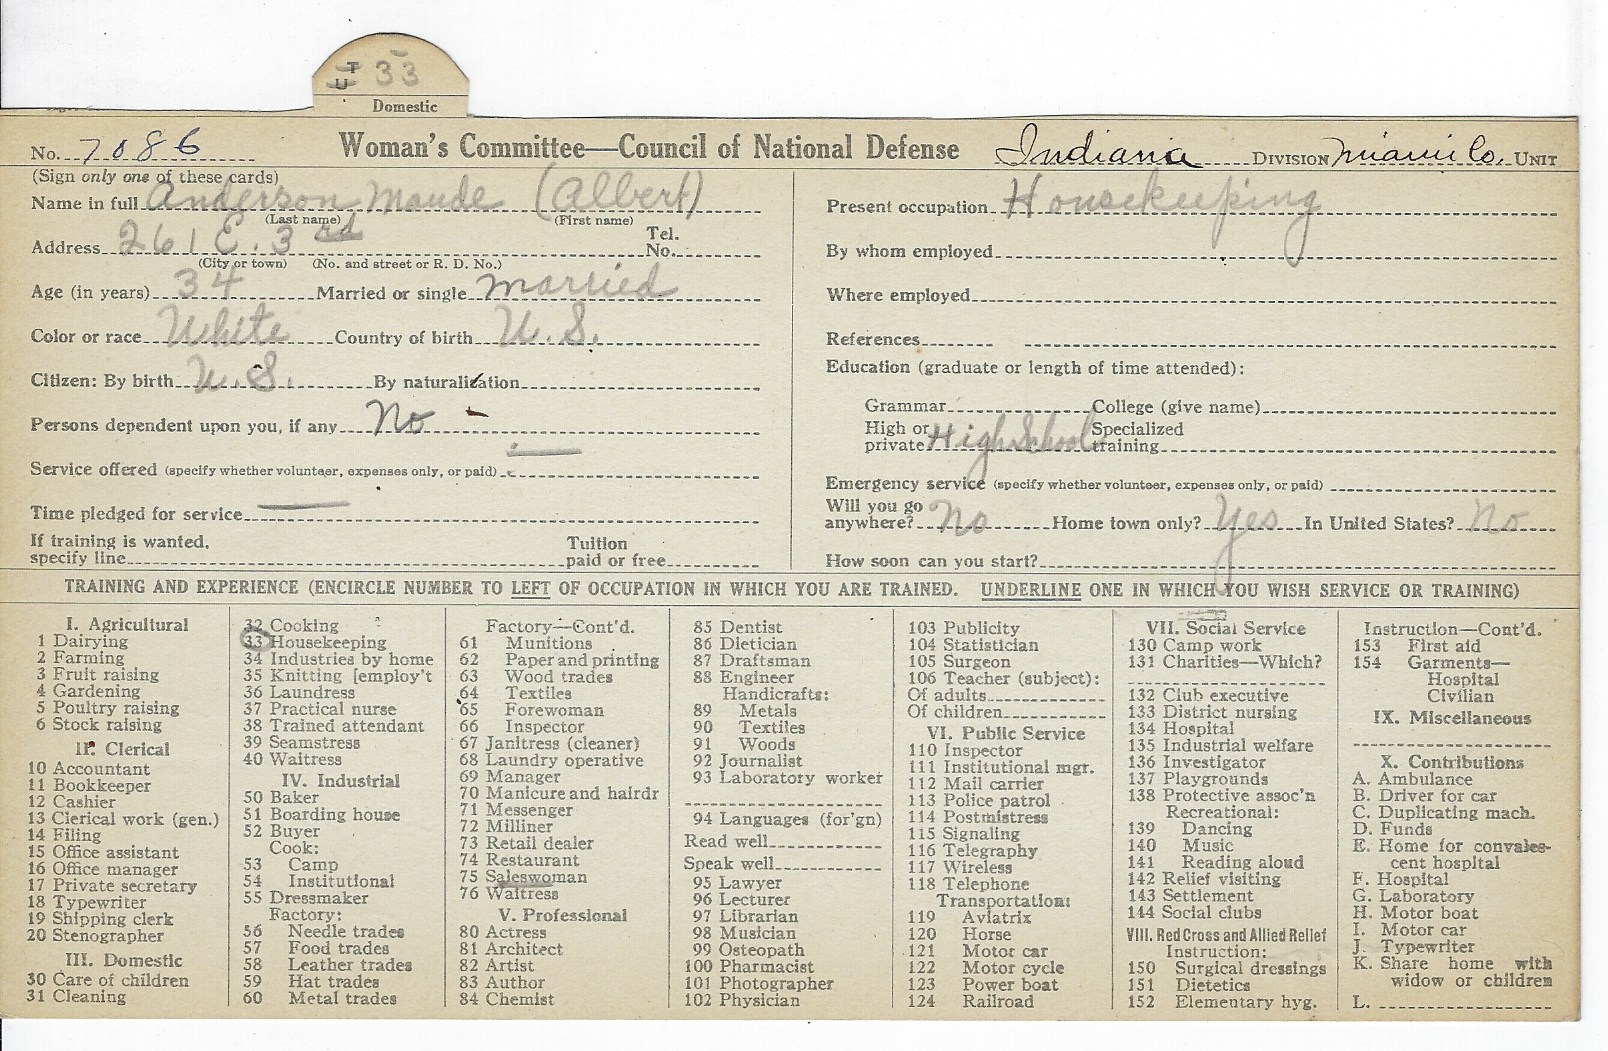 33
Domestic
No. 7086 Woman's Committee—Council of National Defense Indiana DIVISION Miami Co. UNIT
(Sign only one of these cards)
Name in full Anderson Maude (Albert)
(Last name) (First name)
Address 261 E. 3rd Tel. No.
(City or town) (No. and street or R. D. No.)
Age (in years) 34 Married or single married
Color or race White Country of birth U. S.
Citizen: By birth U. S. By naturalization
Persons dependent upon you, if any No -
Service offered (specify whether volunteer, expenses only, or paid)
Time pledged for service
If training is wanted, specify line Tuition paid or free
Present occupation Housekeeping
By whom employed
Where employed
References
Education (graduate or length of time attended):
Grammar College (give name)
High or private High School Specialized training
Emergency service (specify whether volunteer, expenses only, or paid)
Will you go anywhere? No Home town only? Yes In United States? No
How soon can you start?
TRAINING AND EXPERIENCE (ENCIRCLE NUMBER TO LEFT OF OCCUPATION IN WHICH YOU ARE TRAINED. UNDERLINE ONE IN WHICH YOU WISH SERVICE OR TRAINING)
I. Agricultural
1 Dairying
2 Farming
3 Fruit raising
4 Gardening
5 Poultry raising
6 Stock raising
II. Clerical
10 Accountant
11 Bookkeeper
12 Cashier
13 Clerical work (gen.)
14 Filing
15 Office assistant
16 Office manager
17 Private secretary
18 Typewriter
19 Shipping clerk
20 Stenographer
III. Domestic
30 Care of children
31 Cleaning
32 Cooking
33 Housekeeping
34 Industries by home
35 Knitting [employ't
36 Laundress
37 Practical nurse
38 Trained attendant
39 Seamstress
40 Waitress
IV. Industrial
50 Baker
51 Boarding house
52 Buyer
Cook:
53 Camp
54 Institutional
55 Dressmaker
Factory:
56 Needle trades
57 Food trades
58 Leather trades
59 Hat trades
60 Metal trades
Factory—Cont'd.
61 Munitions
62 Paper and printing
63 Wood trades
64 Textiles
65 Forewoman
66 Inspector
67 Janitress (cleaner)
68 Laundry operative
69 Manager
70 Manicure and hairdr
71 Messenger
72 Milliner
73 Retail dealer
74 Restaurant
75 Saleswoman
76 Waitress
V. Professional
80 Actress
81 Architect
82 Artist
83 Author
84 Chemist
85 Dentist
86 Dietician
87 Draftsman
88 Engineer
Handicrafts:
89 Metals
90 Textiles
91 Woods
92 Journalist
93 Laboratory worker
94 Languages (for'gn)
Read well
Speak well
95 Lawyer
96 Lecturer
97 Librarian
98 Musician
99 Osteopath
100 Pharmacist
101 Photographer
102 Physician
103 Publicity
104 Statistician
105 Surgeon
106 Teacher (subject):
Of adults
Of children
VI. Public Service
110 Inspector
111 Institutional mgr.
112 Mail carrier
113 Police patrol
114 Postmistress
115 Signaling
116 Telegraphy
117 Wireless
118 Telephone
Transportation:
119 Aviatrix
120 Horse
121 Motor car
122 Motor cycle
123 Power boat
124 Railroad
VII. Social Service
130 Camp work
131 Charities—Which?
132 Club executive
133 District nursing
134 Hospital
135 Industrial welfare
136 Investigator
137 Playgrounds
138 Protective assoc'n
Recreational:
139 Dancing
140 Music
141 Reading aloud
142 Relief visiting
143 Settlement
144 Social clubs
VIII. Red Cross and Allied Relief
Instruction:
150 Surgical dressings
151 Dietetics
152 Elementary hyg.
Instruction—Cont'd.
153 First aid
154 Garments—
Hospital
Civilian
IX. Miscellaneous
X. Contributions
A. Ambulance
B. Driver for car
C. Duplicating mach.
D. Funds
E. Home for convales-
cent hospital
F. Hospital
G. Laboratory
H. Motor boat
I. Motor car
J. Typewriter
K. Share home with
widow or children
L.